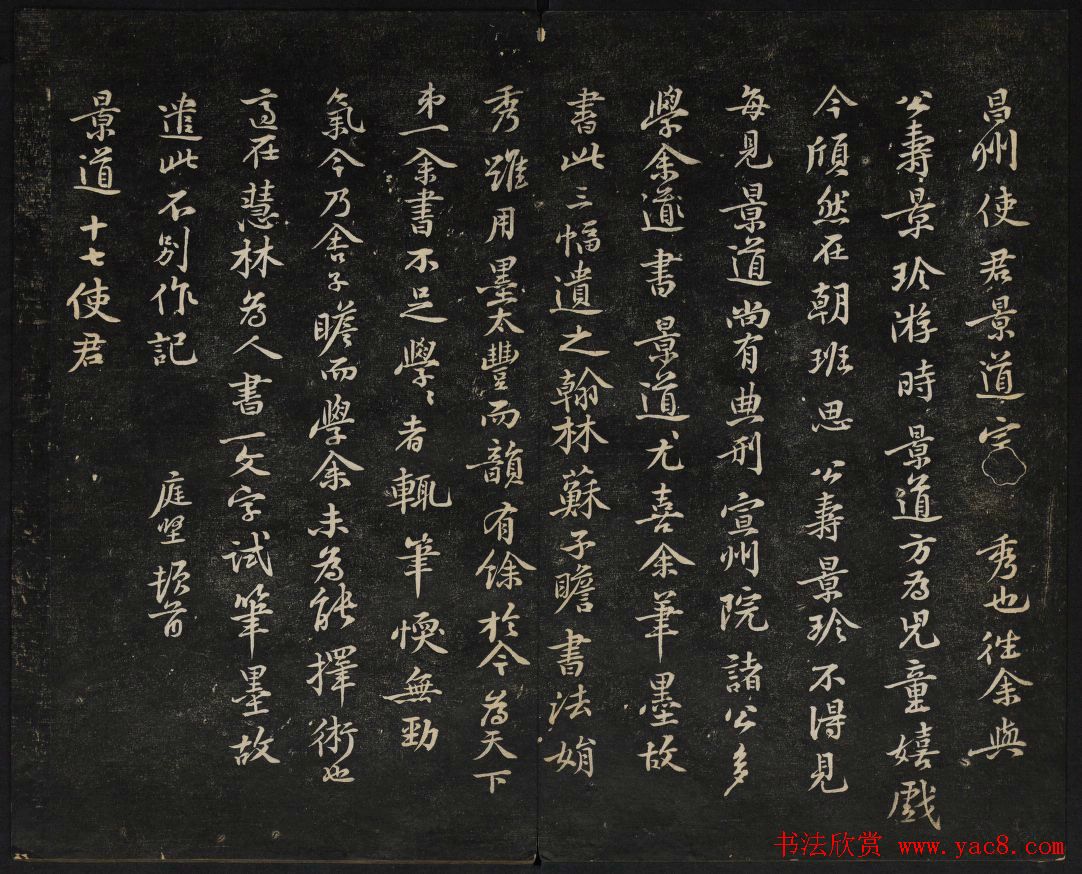 昌州使君景道宗 秀也往余與
公壽景珍游時景道方為兒童嬉戲
今頎然在朝班思 公壽景珍不得見
每見景道尚有典刑宣州院諸公多
學余道書景道尤喜余筆墨故
書此三幅遺之翰林蘇子瞻書法娟
秀雖用墨太豐而韻有餘於今為天下
第一余書不足學學者輒筆愞無勁
氣今乃舍子瞻而學余未為能擇術也
適在慧林為人書一文字試筆墨故
遣此不別作記
庭堅頓首
景道十七使君
书法欣赏 www.yac8.com